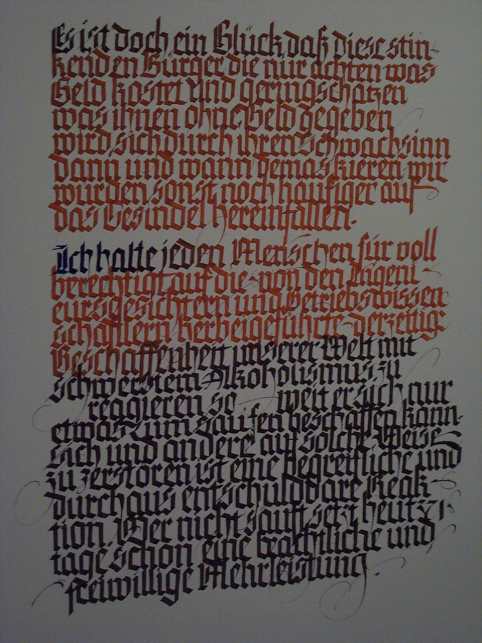 Es ist doch ein Glück, daß diese stin-
kenden Bürger, die nur achten was
Geld kostet und geringschätzen
was ihnen ohne Geld gegeben
wird sich durch ihren Schwachsinn
dann und wann demaskieren, wir
würden sonst noch häufiger auf
das Gesindel hereinfallen.
Ich halte jeden Menschen für voll
berechtigt auf die von den Ingeni-
eursgesichtern und Betriebswissen
schaftlern herbeigeführte derzeitige
Beschaffenheit unserer Welt mit
schwerstem Alkoholismus zu
reagieren so weit er sich nur
etwas zum saufen beschaffen kann.
Sich und andere auf solche Weise
zu zerstören ist eine begreifliche und
durchaus entschuldbare Reak-
tion. Wer nicht säuft setzt heutzu-
tage schon eine beachtliche und
freiwillige Mehrleistung.